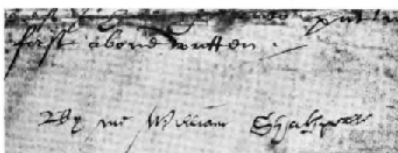 first above written
By me William Shakspeare